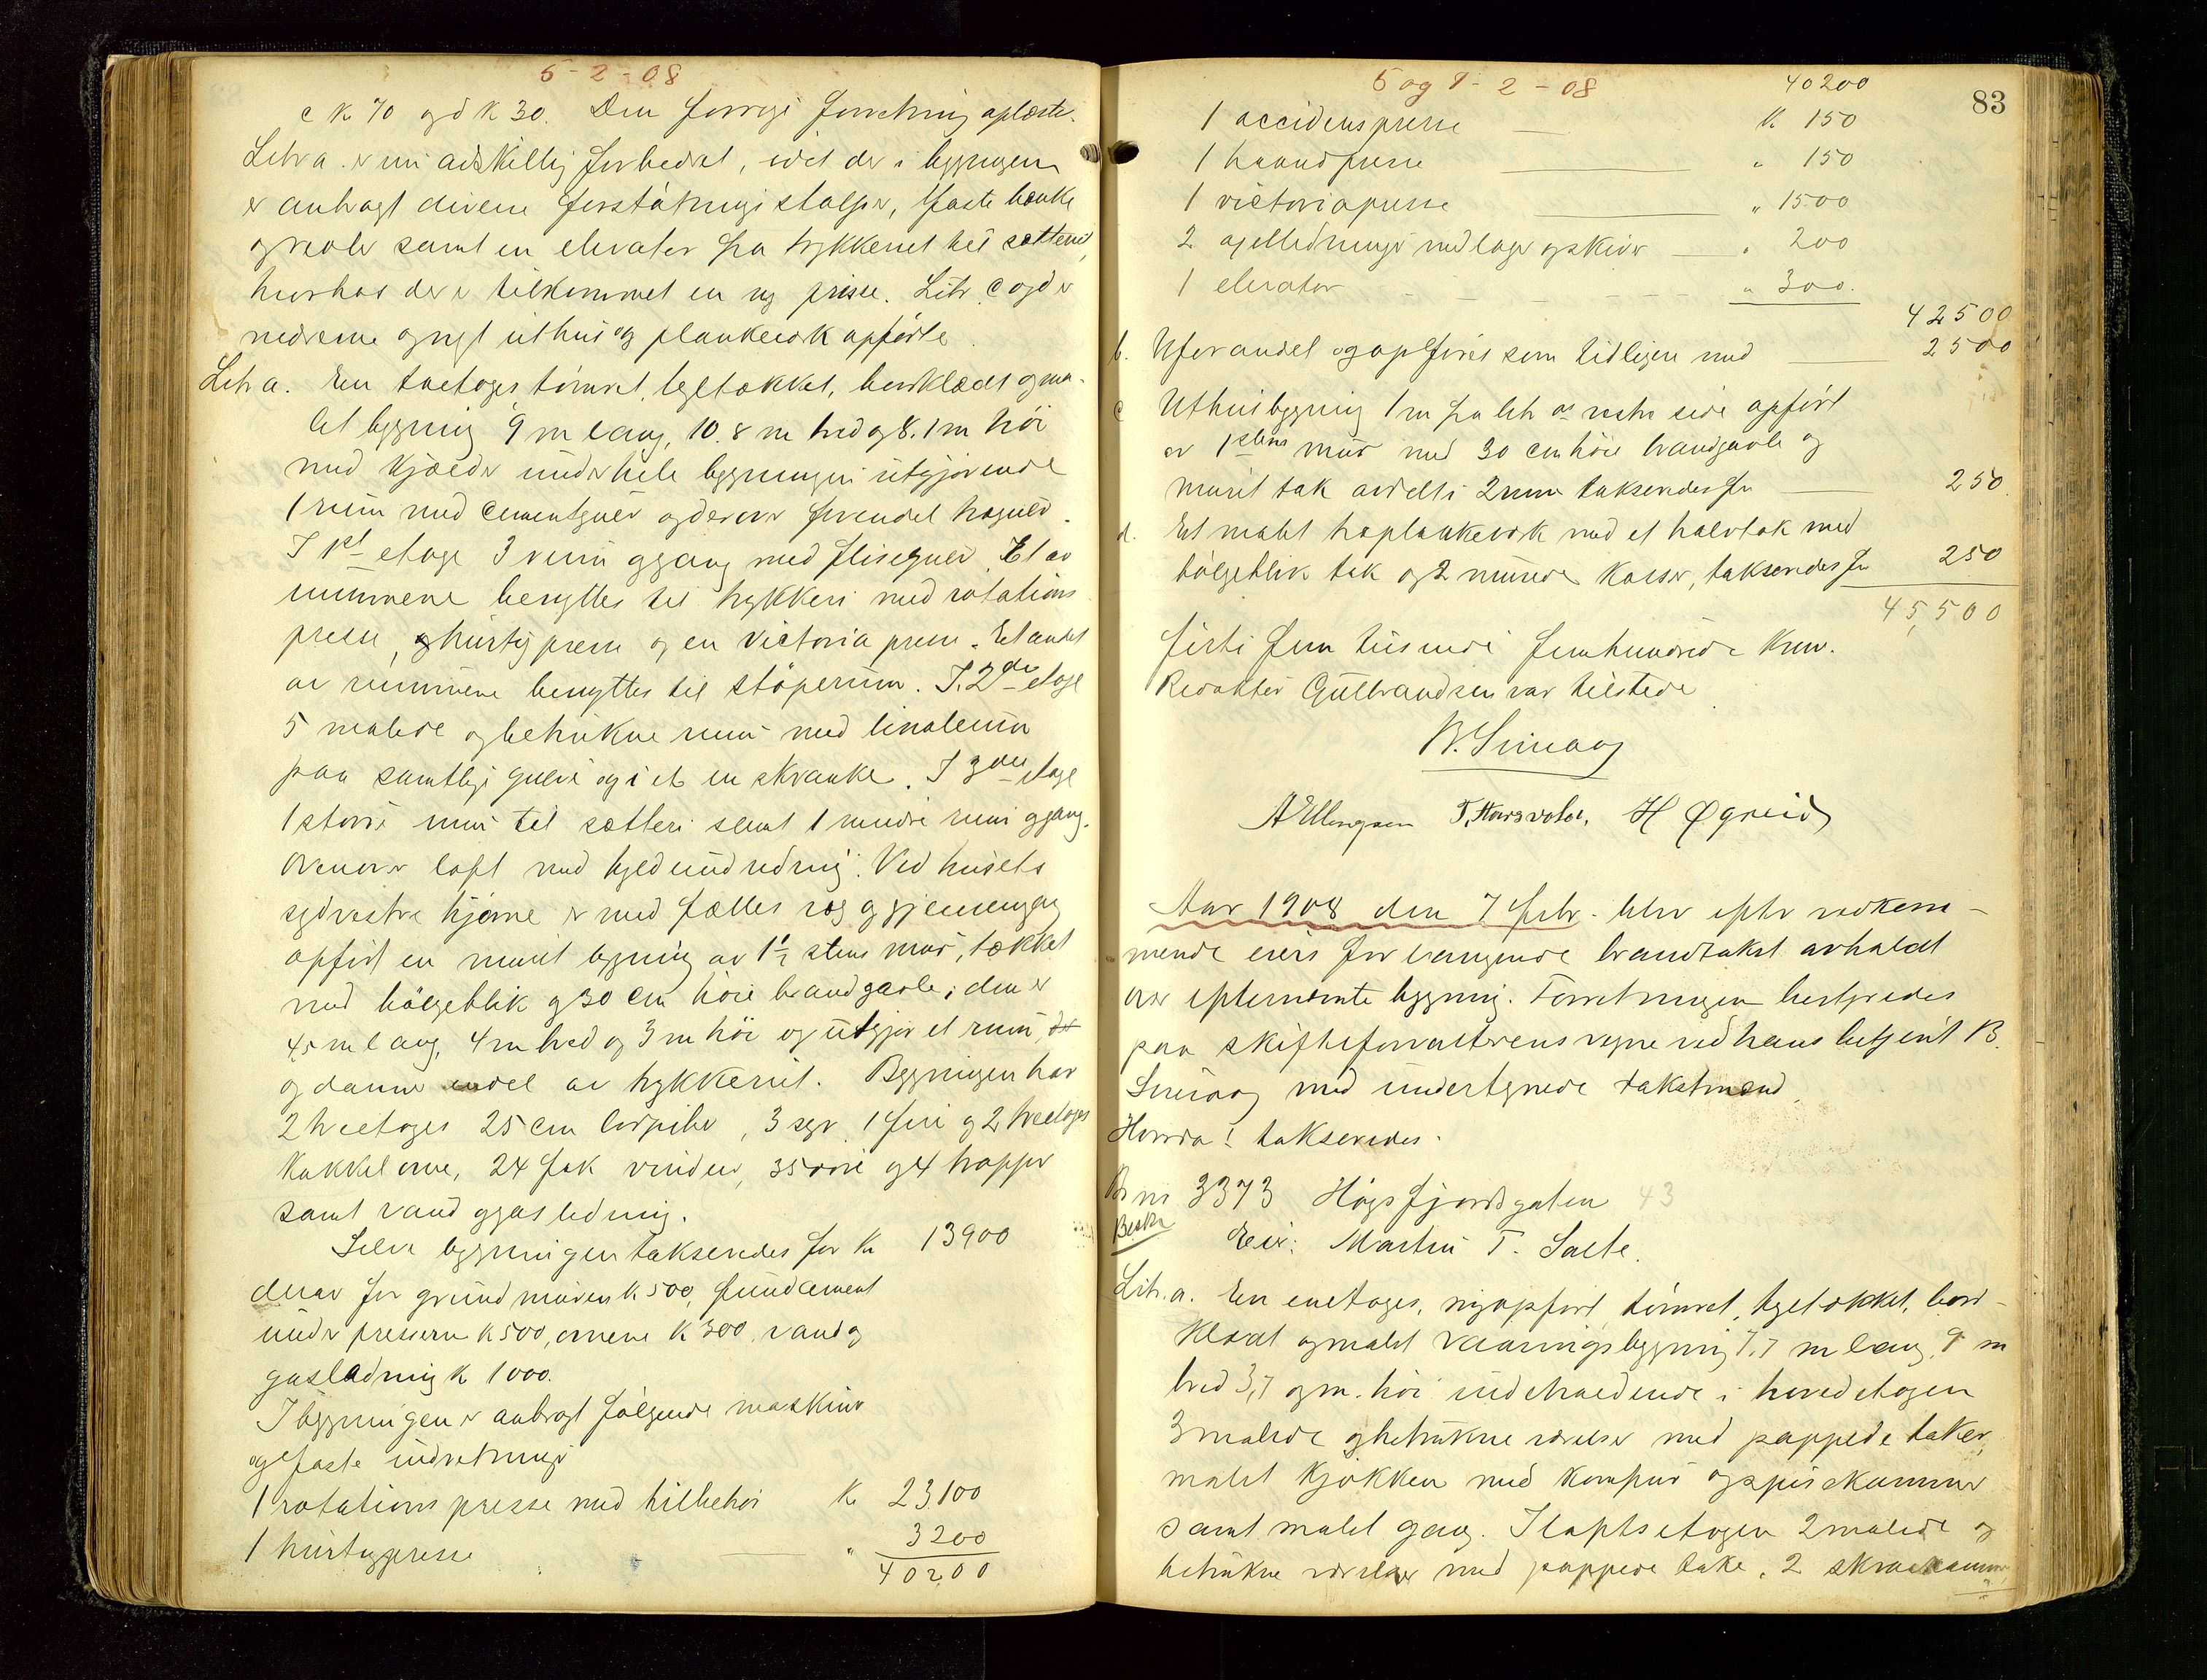 5-2-08
c K 70 og d K 30. Den forrige forretning oplæstes.
Litr a. er nu adskillig forbedret, idet der i bygningen
er anbragt diverse forstøtningsstolper, faste bænke
og reoler samt en elevator fra trykkeriet til sætteriet,
hvorhos der er tilkommet en ny presse. Litr c og d er
nedrevne og nyt uthus og plankeverk opførte.
Litr a. En treetages tømret, tegltækket, bordklædt og ma-
let bygning 9 m lang, 10.8 m bred og 8.1 m høi
med kjælder under hele bygningen utgjørende
1 rum med cementgulv og derover forøvrigt trægulv.
I 1st etage 3 rum og gang med flisegulv. Et av
rummene benyttes til trykkeri med rotations
presse, hurtigpresse og en Victoria presse. Et andet
av rummene benyttes til støperum. I 2den etage
5 malede og betrukne rum med linoleum
paa samtlige gulve og i et en skranke. I 3die etage
1 større rum til sætteri samt 1 mindre rum og gang.
Ovenover loft med kveldindredning. Ved husets
sydvestre hjørne er med fælles væg og gjennemgang
opført en muret bygning av 1½ stens mur, tækket
med bølgeblik og 30 cm høie brandgavle; den er
4,5 m lang, 4 m bred og 3 m høi og utgjør et rum
og danner en del av trykkeriet. Bygningen har
2 treetages 25 cm lødpiber, 3 1 fire og 2 treetages
kakkelovne, 24 fak vinduer, 35 døre og 4 trapper
samt vand og gasledning.
Selve bygningen takseredes for K 13900
derav for grundmuren K 500, fundament
under presserne K 500, ovnene K 300, vand og
gasledning K 1000.
I bygningen er anbragt følgende maskiner
og faste indretninger
1 rotationspresse med tilbehør K 23100
1 hurtigpresse " 3200
40200
5 og 7-2-08
83
40200
1 accidenspresse K 150
1 haandpresse " 150
1 victoriapresse " 1500
2 axelledninger med lager og skiver " 200
1 elevator " 300.
42500
b. Uforandret og opføres som tidligere med 2500
c Uthusbygning 1 m fra litr as vestre side opført
av 1 stens mur med 30 cm høie brandgavle og
muret tak avdelt i 2 rum takseredes for 250.
d. Et malet træplankeverk med et halvtak med
bølgeblik tak og 2 murede kasser, takseredes for 250
45,500
førti fem tusende femhundrede kron.
Redaktør Gulbrandsen var tilstede
B. Sunaag
A Ellingsen T. Haavoldse. H Øgreid
Aar 1908 den 7 febr. blev efter vedkom-
mende eiers forlangende brandtakst avholdt
over efternevnte bygning. Forretningen bestyredes
paa skifteforvalterens vegne ved hans betjent B.
Sunaag med undertegnede takstmænd.
Hvorda! takseredes.
Br nr 3373 Høgsfjordsgaten 43
Beskr
Eier: Martin T. Salte.
Litr. a. En enetages, nyopført, tømret, tegltækket, bord-
klædt og malet vaaningsbygning 7,7 m lang, 9 m
bred 3,7 og m. høi indeholdende i hovedetagen
3 malede og betrukne værelser med pappede taker,
malet kjøkken med komfur og spisekammer
samt malet gang. I loftsetagen 2 malede og
betrukne værelser med pappede take, 2 skraakammer,